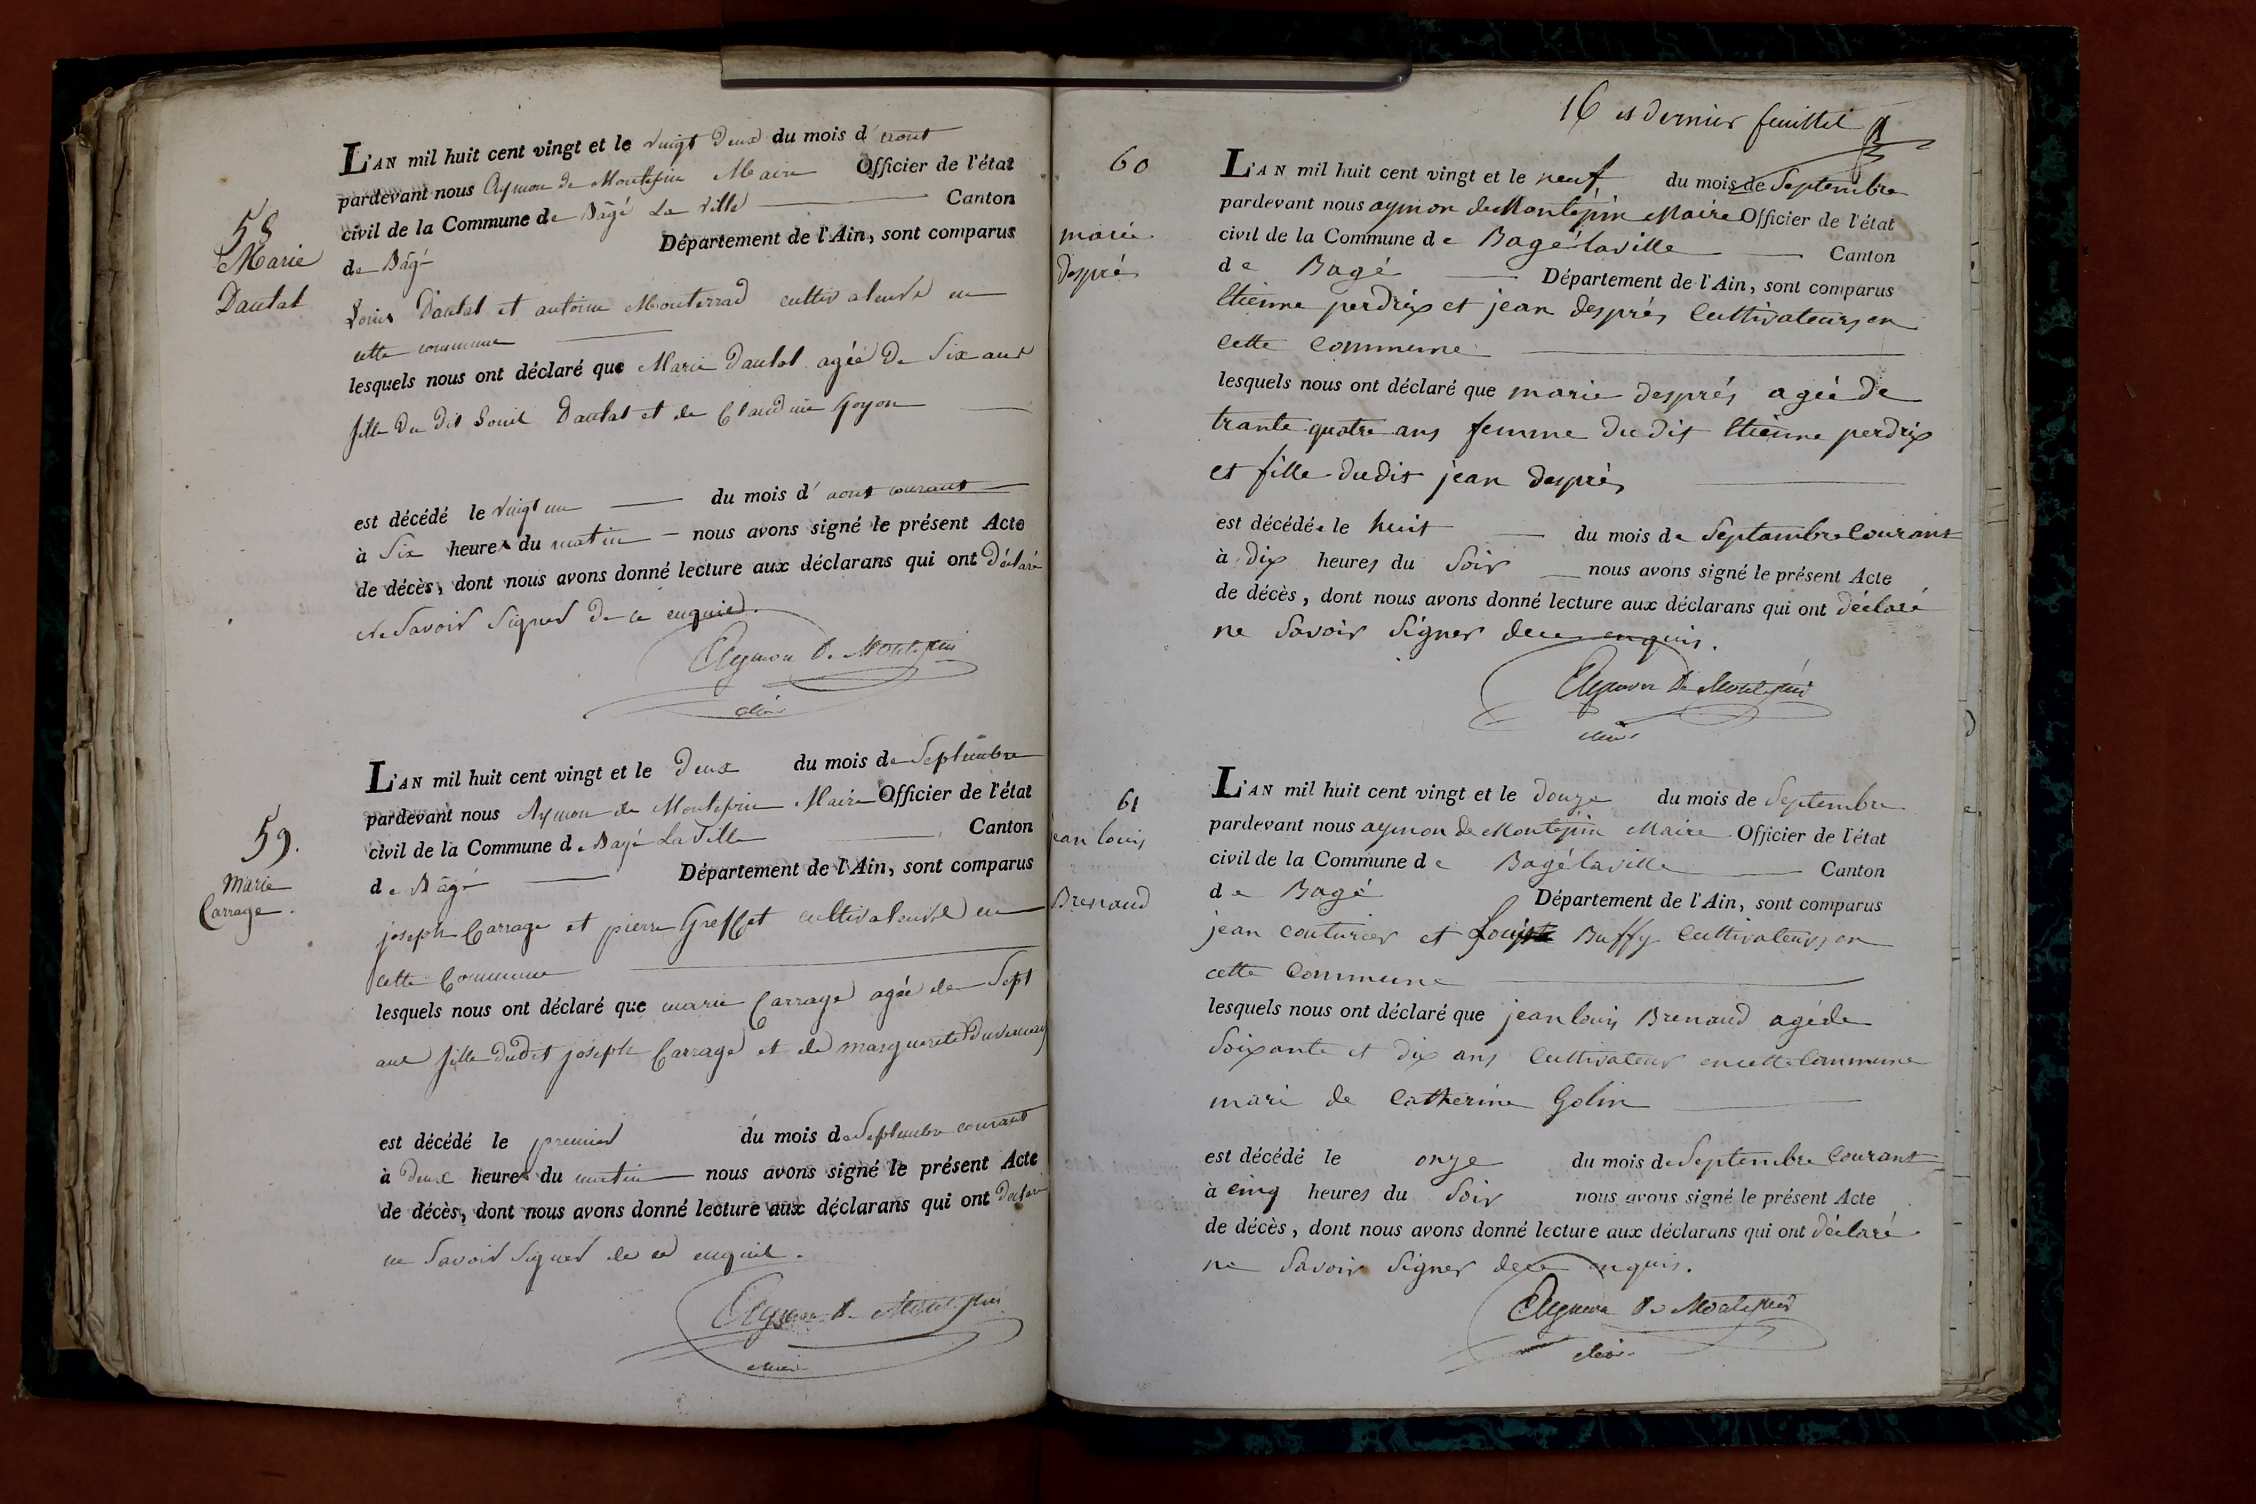 58
Marie
Dautat
L'AN mil huit cent vingt et le vingt deux du mois d'aout
pardevant nous Aymon de Montepin Maire Officier de l'état
civil de la Commune de Bâgé La Ville Canton
de Bâgé Département de l'Ain, sont comparus
Louis Dautat et antoine Monterrad cultivateurs en
cette commune
lesquels nous ont déclaré que Marie Dautat agée De Six ans
fille Du dit Louis Dautat et de Claudine Goyon
est décédé le vingt un du mois d'aout courant
à Six heures du matin nous avons signé le présent Acte
de décès, dont nous avons donné lecture aux déclarans qui ont Déclaré
Ne Savoir Signer De ce enquis.
Aymon De Montepin
Maire
59.
Marie
Carrage.
L'AN mil huit cent vingt et le Deux du mois de Septembre
pardevant nous Aymon de Montepin Maire Officier de l'état
civil de la Commune de Bagé La Ville Canton
de Bâgé Département de l'Ain, sont comparus
joseph Carrage et pierre Greffet cultivateurs en
cette Commune
lesquels nous ont déclaré que marie Carrage agée de Sept
ans fille dudit joseph Carrage et de marguerite Duvernay
est décédé le premier du mois de Septembre courant
à Deux heures du matin nous avons signé le présent Acte
de décès, dont nous avons donné lecture aux déclarans qui ont Déclaré
ne Savoir Signer de ce enquis.
Aymon De Montepin
Maire
16 et dernier feuillet
60
marie
després
L'AN mil huit cent vingt et le neuf du mois de Septembre
pardevant nous aymon de Montépin Maire Officier de l'état
civil de la Commune de Bagé laville Canton
de Bagé Département de l'Ain, sont comparus
Etienne perdrix et jean després Cultivateurs en
cette Commune
lesquels nous ont déclaré que marie després agée de
trante quatre ans femme dudit Etienne perdrix
et fille dudit jean després
est décédée le huit du mois de Septambre Courant
à Dix heures du Soir nous avons signé le présent Acte
de décès, dont nous avons donné lecture aux déclarans qui ont déclaré
ne Savoir Signer de ce enquis.
Aymon De Montepin
Maire
61
jean louis
Brenaud
L'AN mil huit cent vingt et le Douze du mois de Septembre
pardevant nous aymon de Montépin Maire Officier de l'état
civil de la Commune de Bagé laville Canton
de Bagé Département de l'Ain, sont comparus
jean couturier et Louis Buffy Cultivateurs en
cette Commune
lesquels nous ont déclaré que jean louis Brenaud agé de
Soixante et dix ans Cultivateur en cette Commune
mari de Catherine Golin
est décédé le onze du mois de Septembre Courant
à cinq heures du Soir nous avons signé le présent Acte
de décès, dont nous avons donné lecture aux déclarans qui ont déclaré
ne Savoir Signer de ce enquis.
Aymon De Montepin
Maire